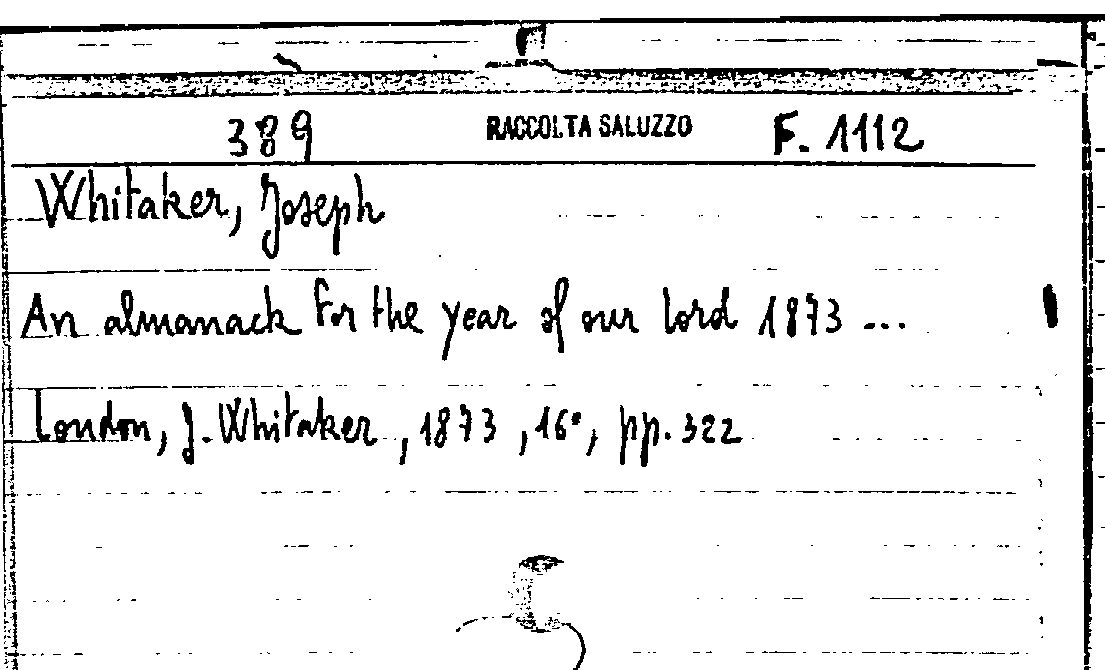 389 RACCOLTA SALUZZO F. 1112
Whitaker, Joseph
An almanack for the year of our lord 1873 ...
London, J. Whitaker, 1873, 16°, pp. 322